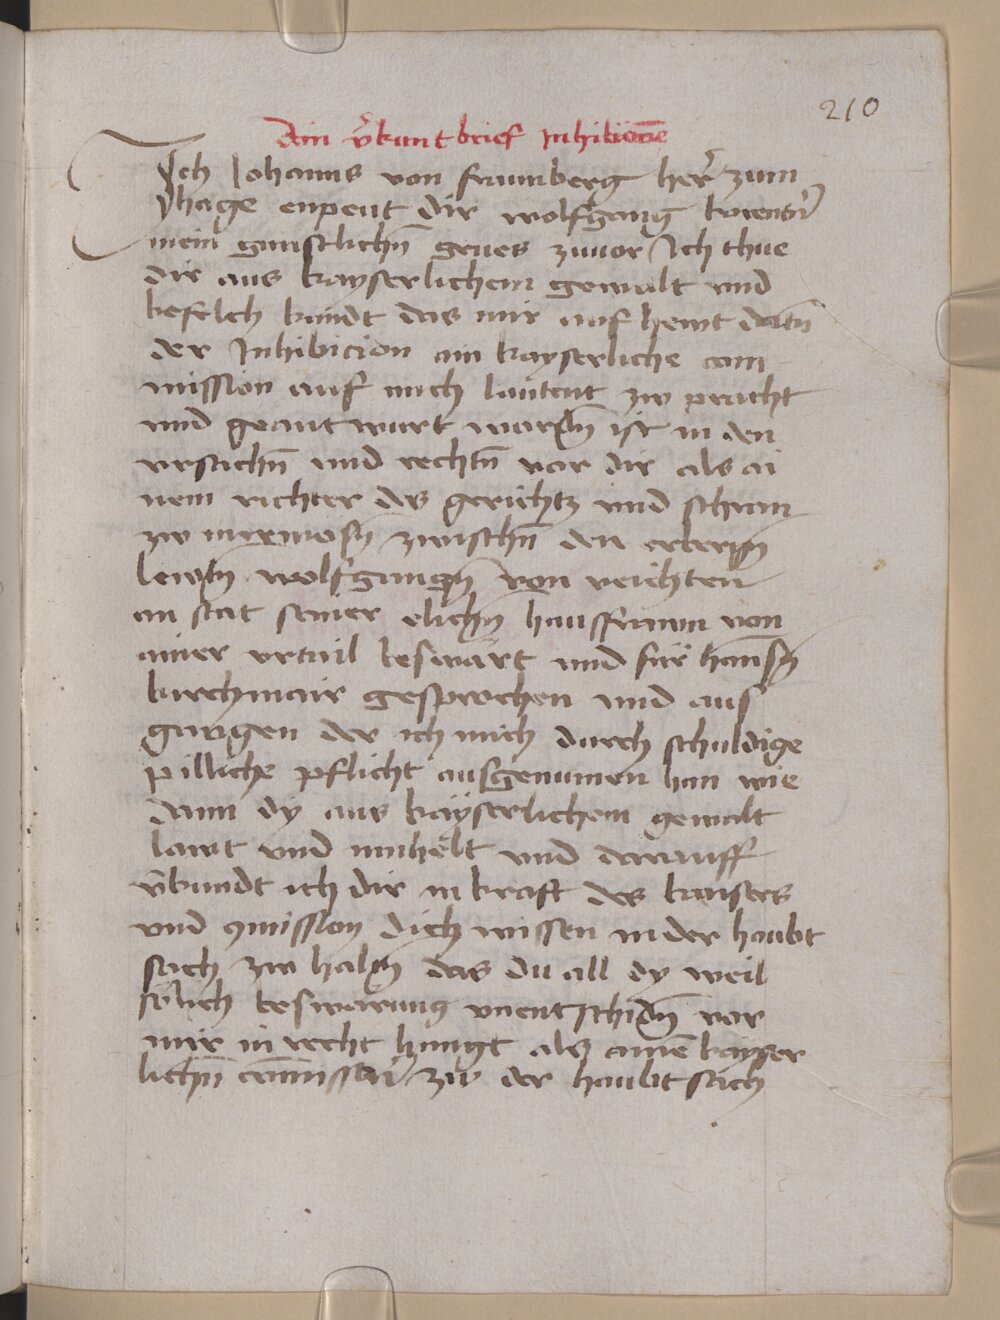 210
Ain v̄kunt brief Inhibicione
Ich Johanns von frawnberg her̄ zum
hage enpeut dir wolfgang
mein gunstlichn̄ grues zuuor Ich thue
dir aus kayserlichem gewalt vnd
befelch kundt das mir auf hewt datū
der Inhibicion ain kayserliche com
mission auf mich lautent zw pracht
vnd geantwurt wordn̄ ist in den
vrsachn̄ vnd rechtn̄ vor dir als ai
nem richter des gerichtz vnd schran
zw zwischn̄ den erbern̄
lewtn̄ wolfgangn̄ von veichten
an stat seiner elichn̄ hausfrawn von
ainer vrtail beswärt vnd für hannsn̄
kirchmair gesprochen vnd aus
gangen der ich mich durch schuldige
pilliche pflicht ausgenumen han wie
dann dy aus kayserlichem gewalt
lawt vnd innhelt vnd darauff
v̄kundt ich dir in kraft des kaisers
vnd 9mission dich wissen in der haubt
sach zw haltn̄ das du all dy weil
sölich beswarung vnentschidn̄ vor
mir in recht hangt als ainē kayser
lichn̄ cōmissari zw der haubtsach